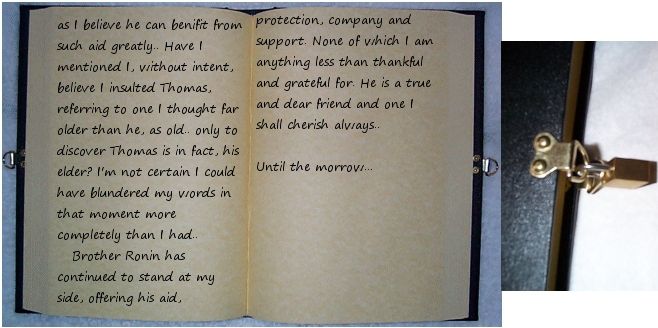 as I believe he can benifit from
such aid greatly.. Have I
mentioned I, without intent,
believe I insulted Thomas,
referring to one I thought far
older than he, as old.. only to
discover Thomas is in fact, his
elder? I'm not certain I could
have blundered my words in
that moment more
completely than I had..
Brother Ronin has
continued to stand at my
side, offering his aid,
protection, company and
support. None of which I am
anything less than thankful
and grateful for. He is a true
and dear friend and one I
shall cherish always..
Until the morrow...